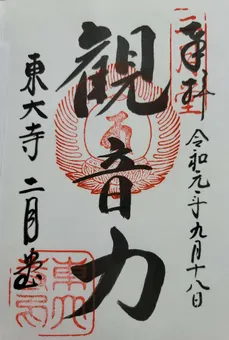 奉拝
令和元年九月十八日
観音力
東大寺 二月堂